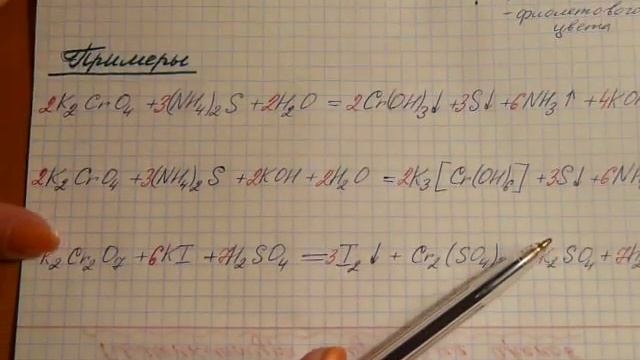 - фиолетового
цвета
Примеры
2K₂CrO₄ + 3(NH₄)₂S + 2H₂O = 2Cr(OH)₃↓ + 3S↓ + 6NH₃↑ + 4KOH
2K₂CrO₄ + 3(NH₄)₂S + 2KOH + 2H₂O = 2K₃[Cr(OH)₆] + 3S↓ + 6NH
K₂Cr₂O₇ + 6KI + 7H₂SO₄ = 3I₂↓ + Cr₂(SO₄)₃ K₂SO₄ + 7H₂